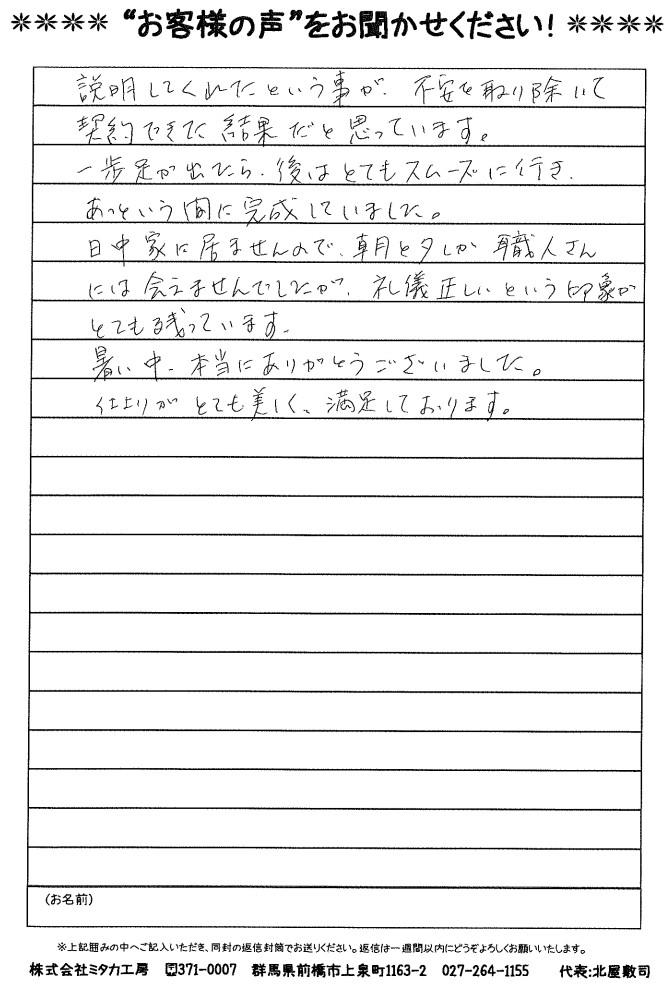 ❊❊❊❊ “お客様の声”をお聞かせください! ❊❊❊❊
説明してくれたという事が、不安を取り除いて
契約できた結果だと思っています。
一歩足が出たら、後はとてもスムーズに行き、
あっという間に完成していました。
日中家に居ませんので、朝と夕しか職人さん
には会えませんでしたが、礼儀正しいという印象が
とても残っています。
暑い中、本当にありがとうございました。
仕上りがとても美しく、満足しております。
(お名前)
※上記囲みの中へご記入いただき、同封の返信封筒でお送りください。返信は一週間以内にどうぞよろしくお願いいたします。
株式会社ミタカ工房 〒371-0007 群馬県前橋市上泉町1163-2 027-264-1155 代表:北屋敷司